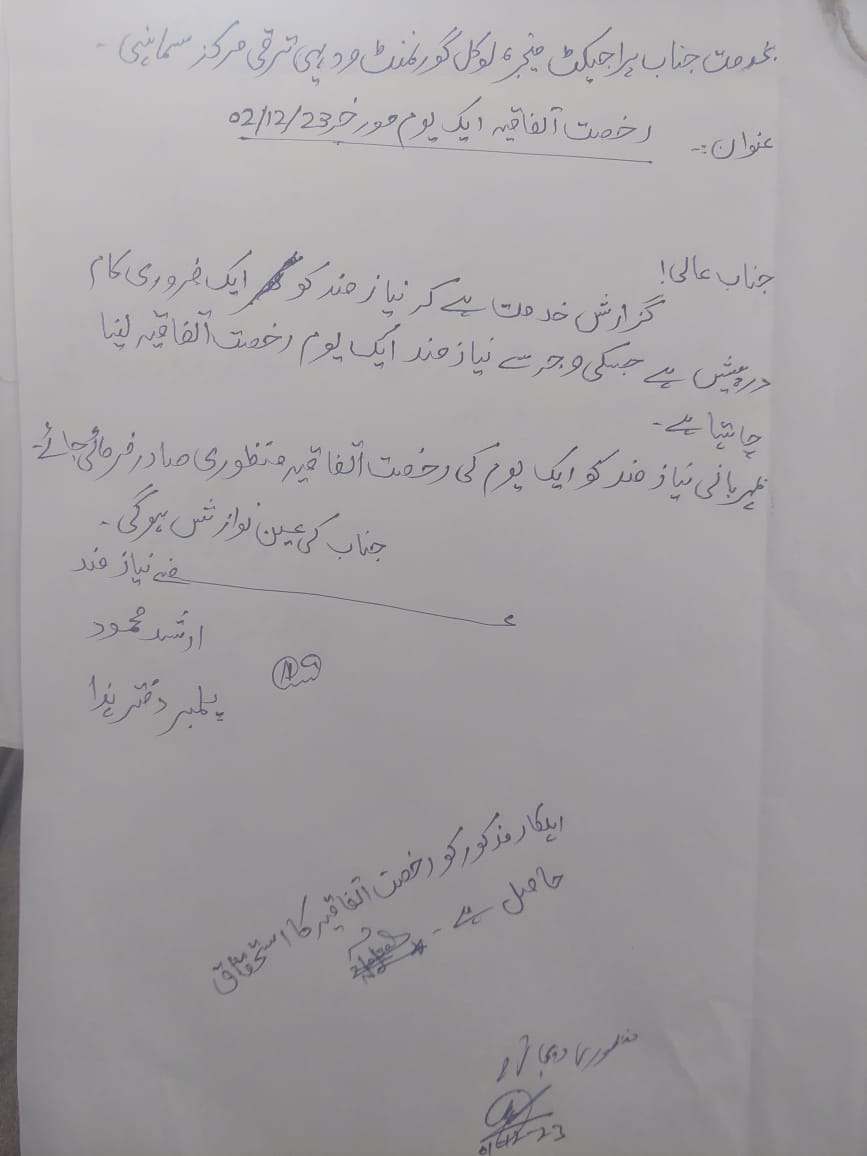 بخدمت جناب پراجیکٹ منیجر، لوکل گورنمنٹ و دیہی ترقی مرکز سماہنی۔
عنوان:۔ رخصت اتفاقیہ ایک یوم مورخہ 02/12/23
جناب عالی!
گزارش خدمت ہے کہ نیاز مند کو ایک ضروری کام
درپیش ہے جسکی وجہ سے نیاز مند ایک یوم رخصت اتفاقیہ لینا
چاہتا ہے۔
مہربانی نیاز مند کو ایک یوم کی رخصت اتفاقیہ منظوری صادر فرمائی جائے۔
جناب کی عین نوازش ہوگی۔
نیاز مند
ارشد محمود
پلمبر دفتر ہذا
اہلکار مذکور کو رخصت اتفاقیہ کا استحقاق
حاصل ہے۔
منظوری دی جاتی ہے
01-12-23